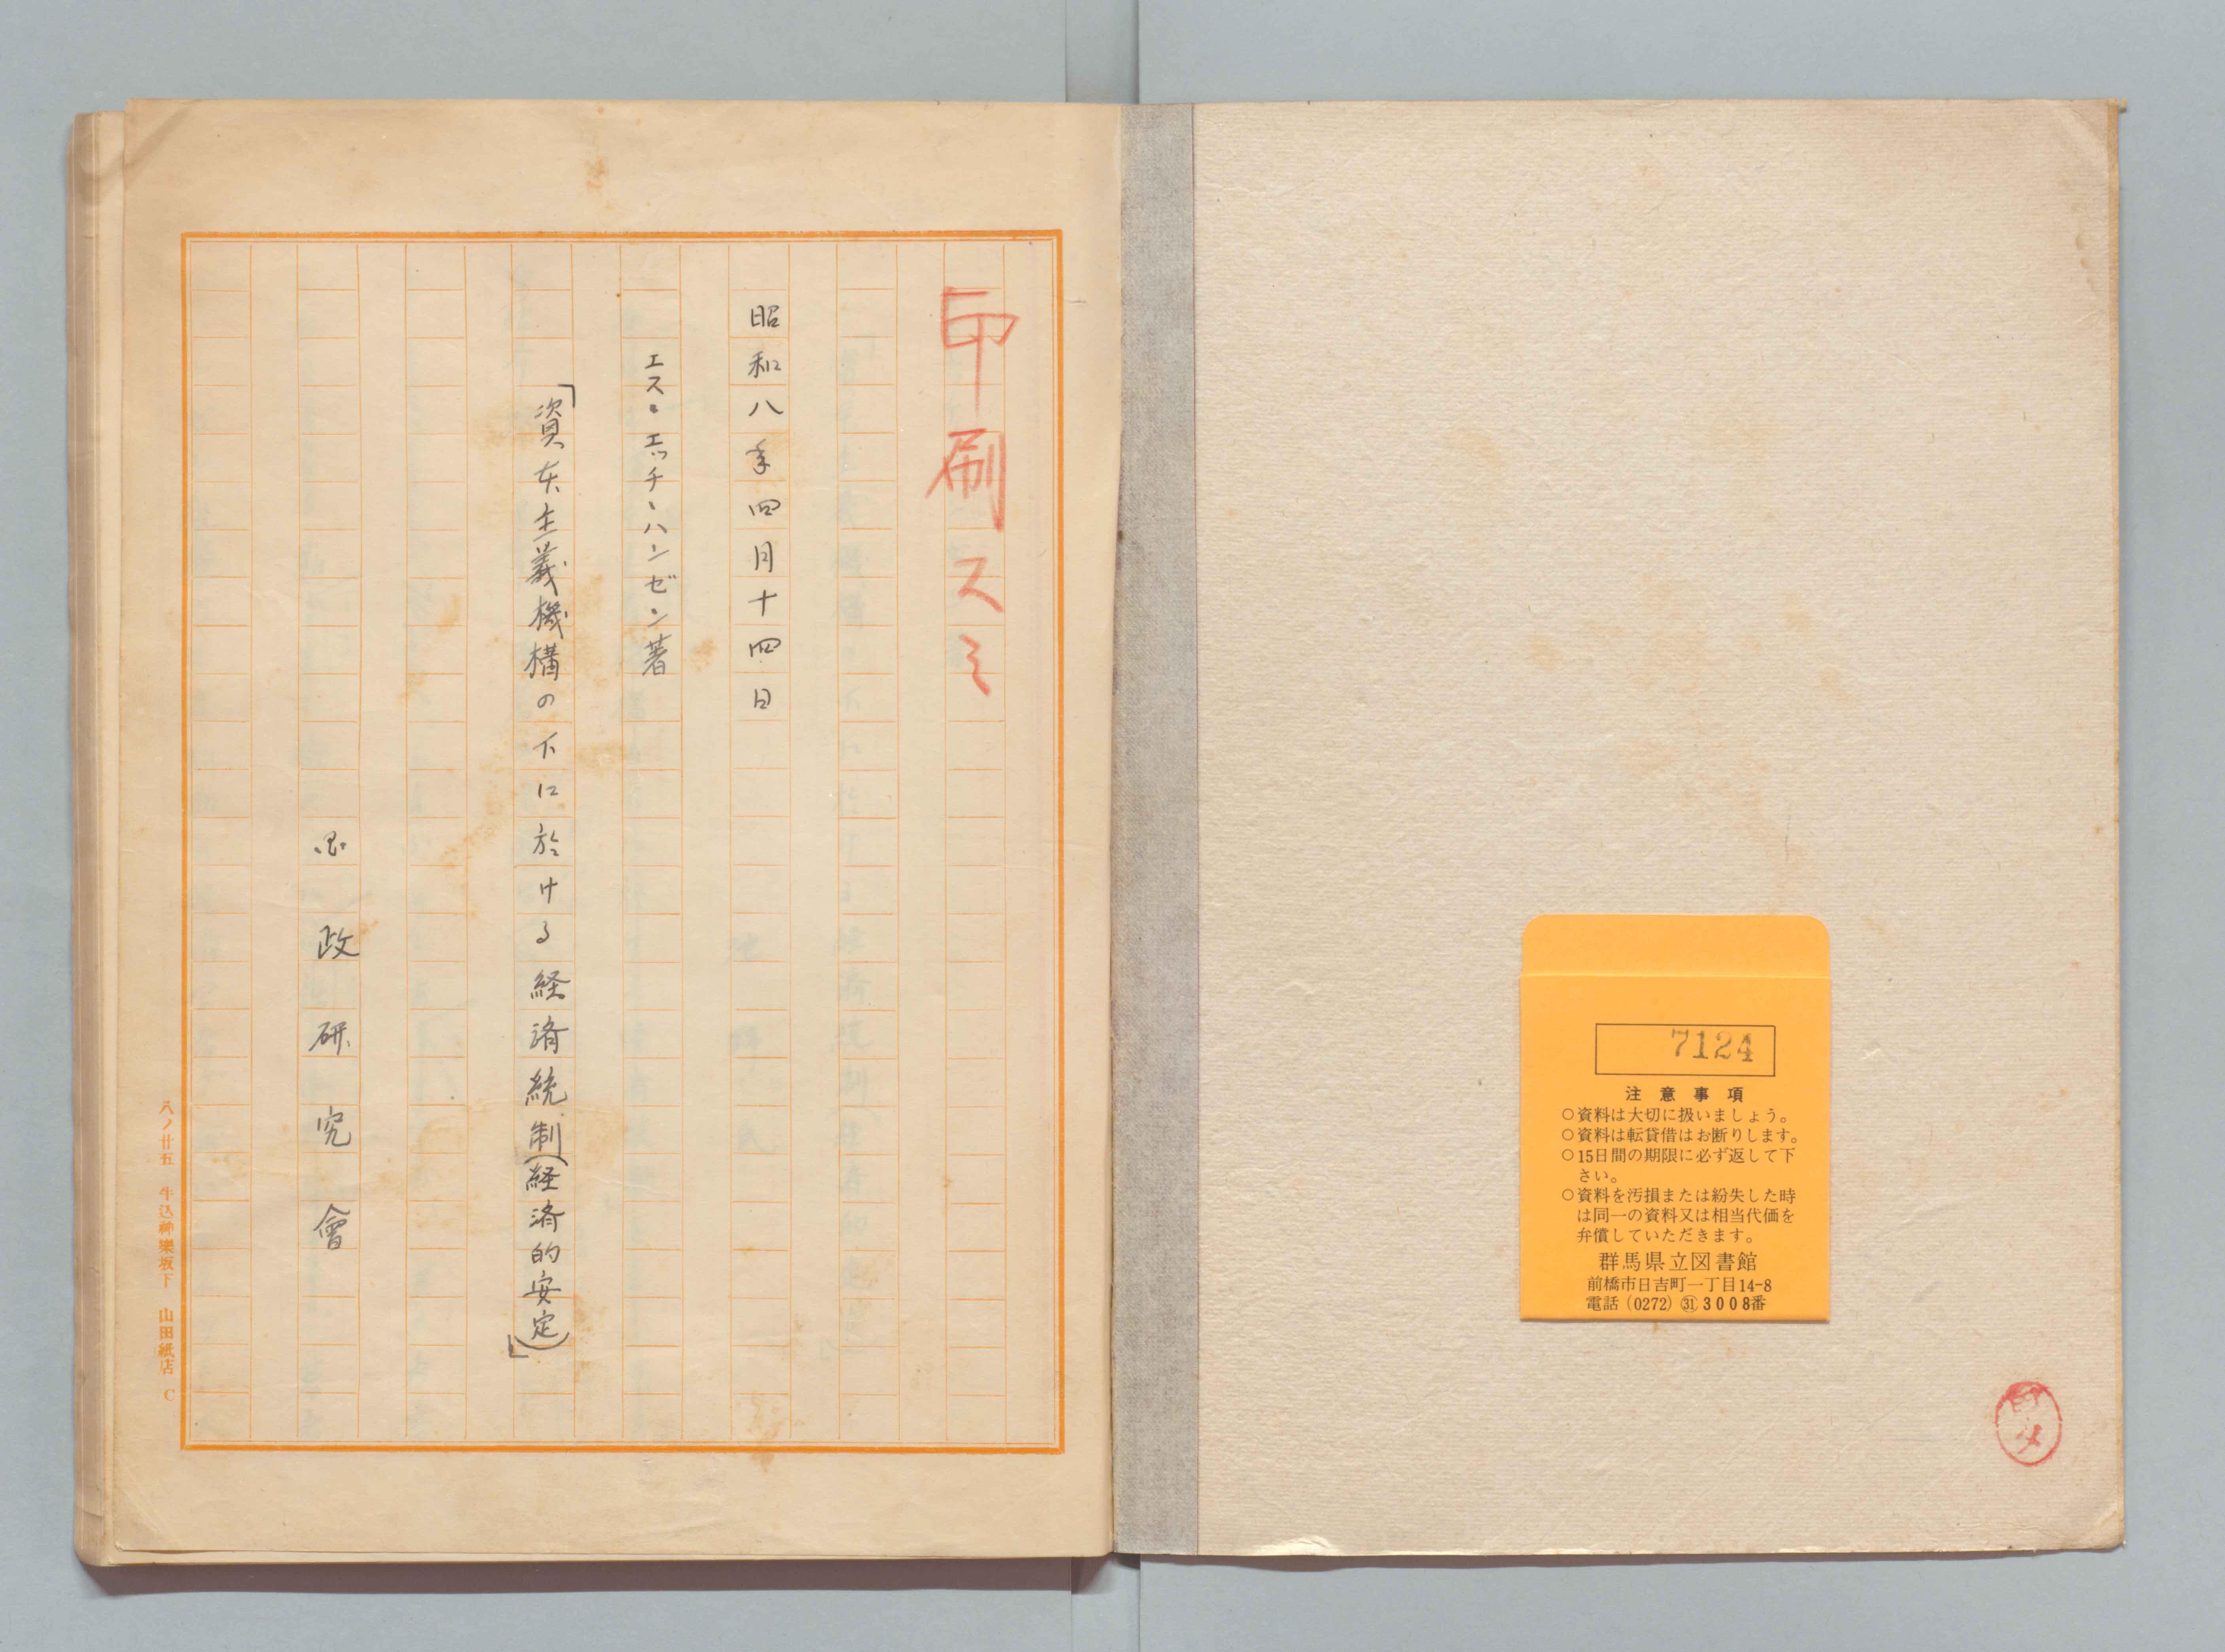 7124
注意事項
○資料は大切に扱いましょう。
○資料は転貸借はお断りします。
○15日間の期限に必ず返して下
さい。
○資料を汚損または紛失した時
は同一の資料又は相当代価を
弁償していただきます。
群馬県立図書館
前橋市日吉町一丁目14-8
電話(0272)㉛3008番
印刷スミ
昭和八年四月十四日
エス・エッチ・ハンゼン著
「資本主義機構の下に於ける経済統制(経済的安定)」
国政研究會
八ノ廿五 牛込神樂坂下 山田紙店 C